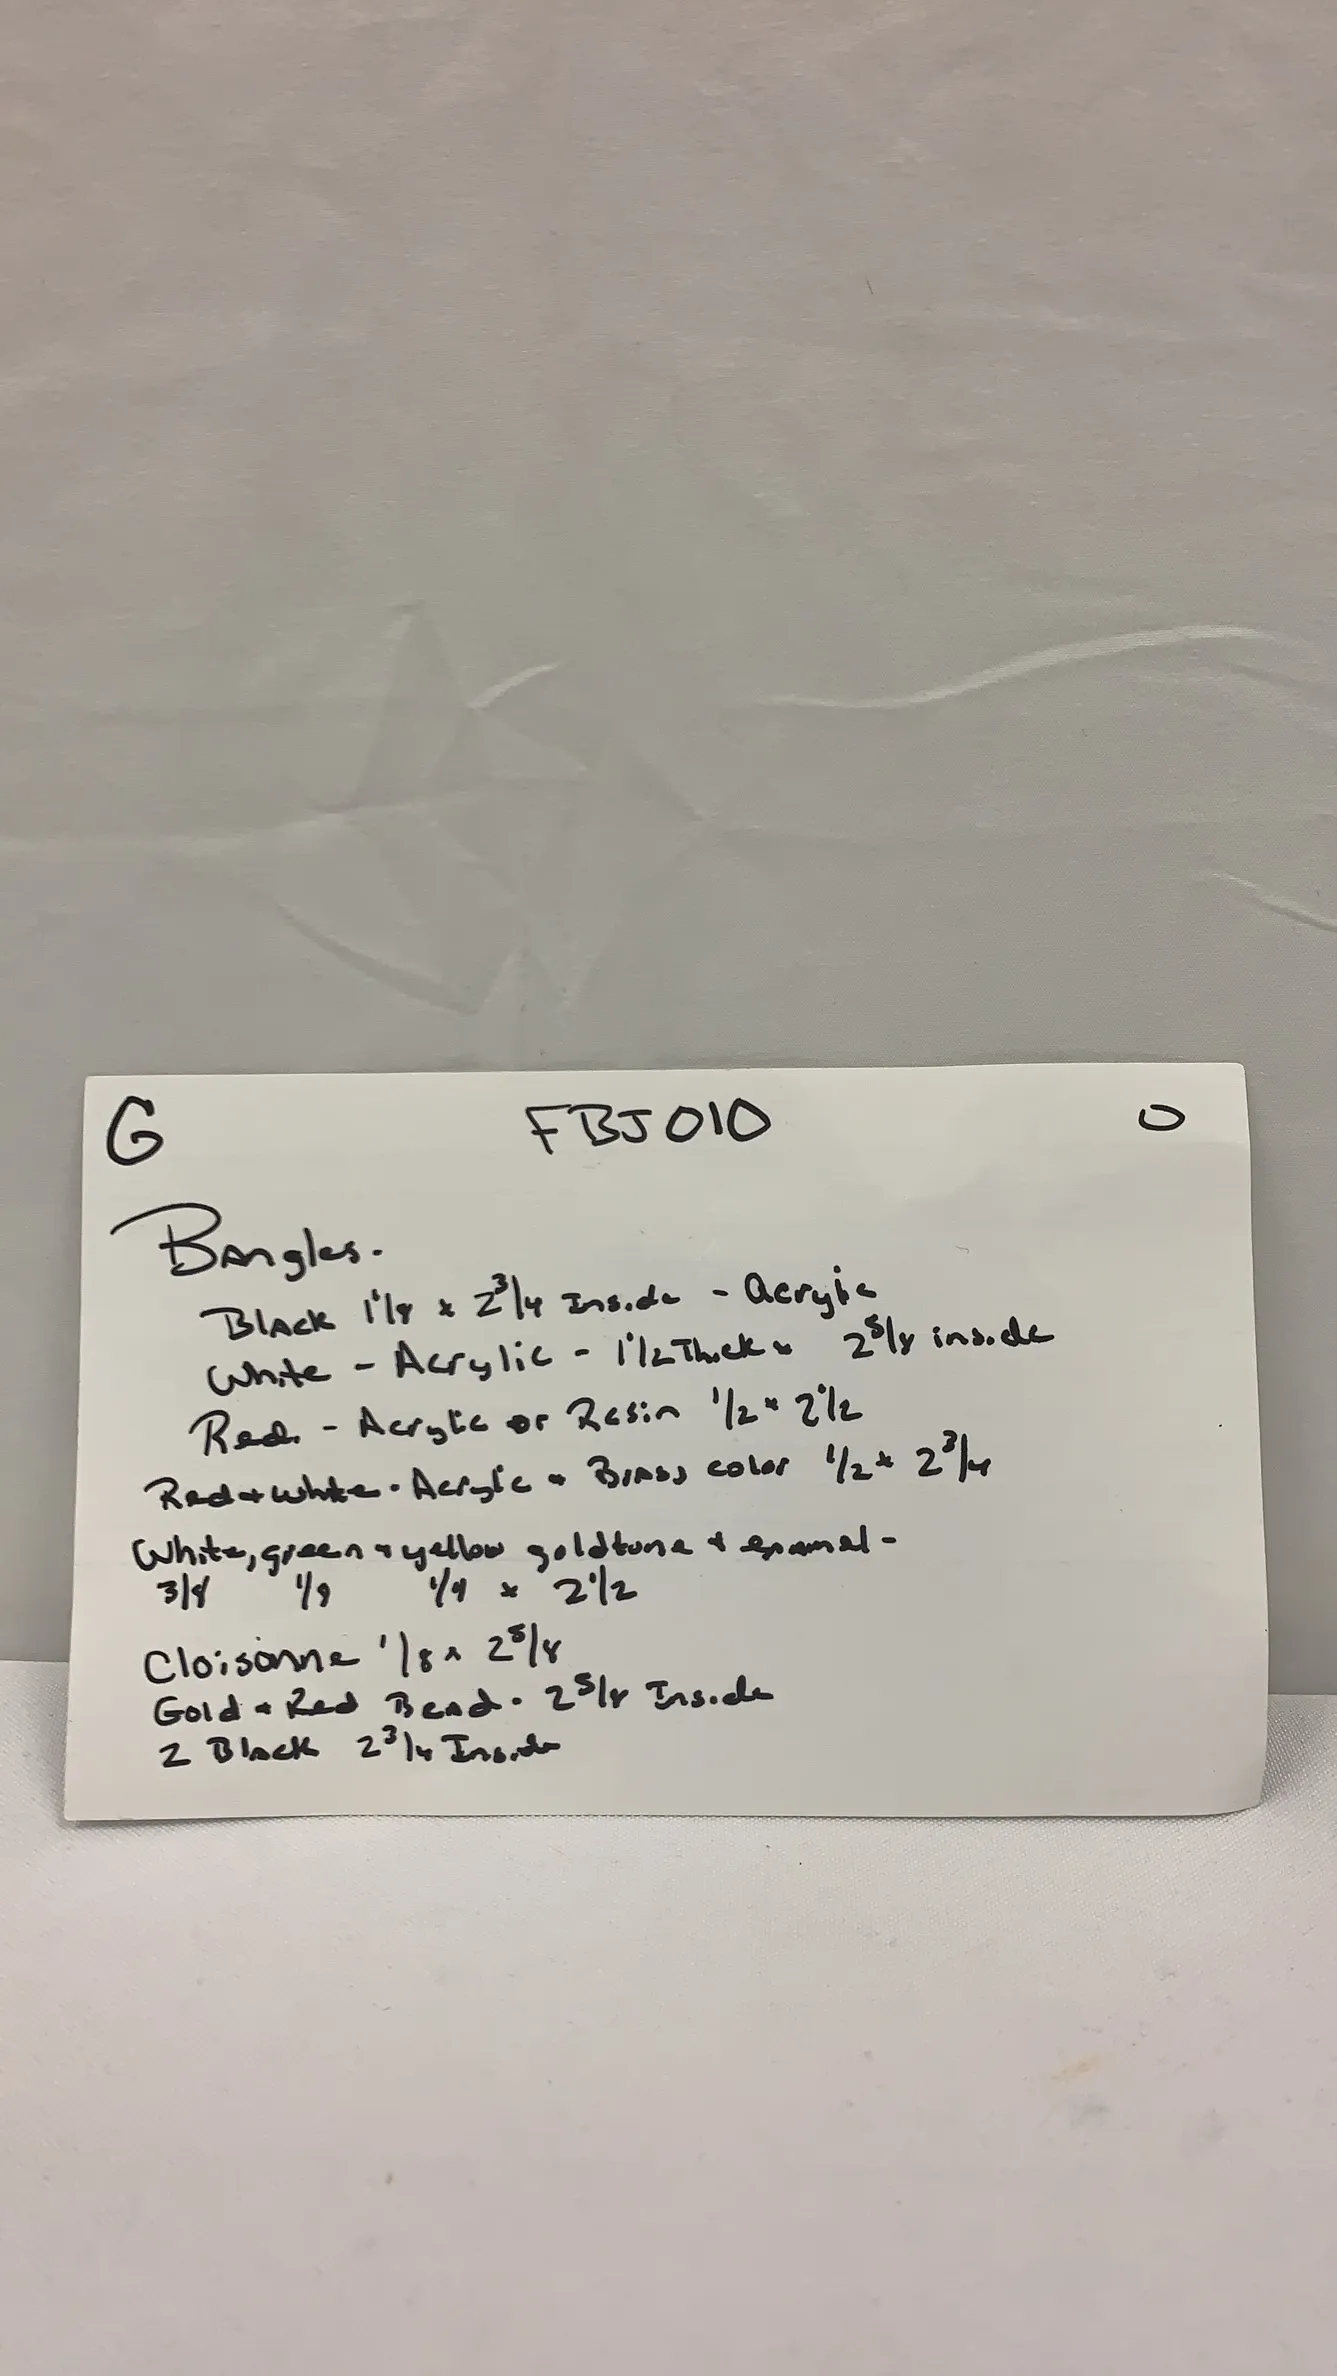 G FBJ010 O
Bangles.
Black 1 1/8 x 2 3/4 Inside - Acrylic
White - Acrylic - 1 1/2 Thick x 2 5/8 inside
Red - Acrylic or Resin 1/2 x 2 1/2
Red + White - Acrylic + Brass color 1/2 x 2 3/4
White, green + yellow goldtone + enamel -
3/8 1/4 x 2 1/2
Cloisonne 1/8 x 2 5/8
Gold + Red Bead - 2 5/8 Inside
2 Black 2 3/4 Inside